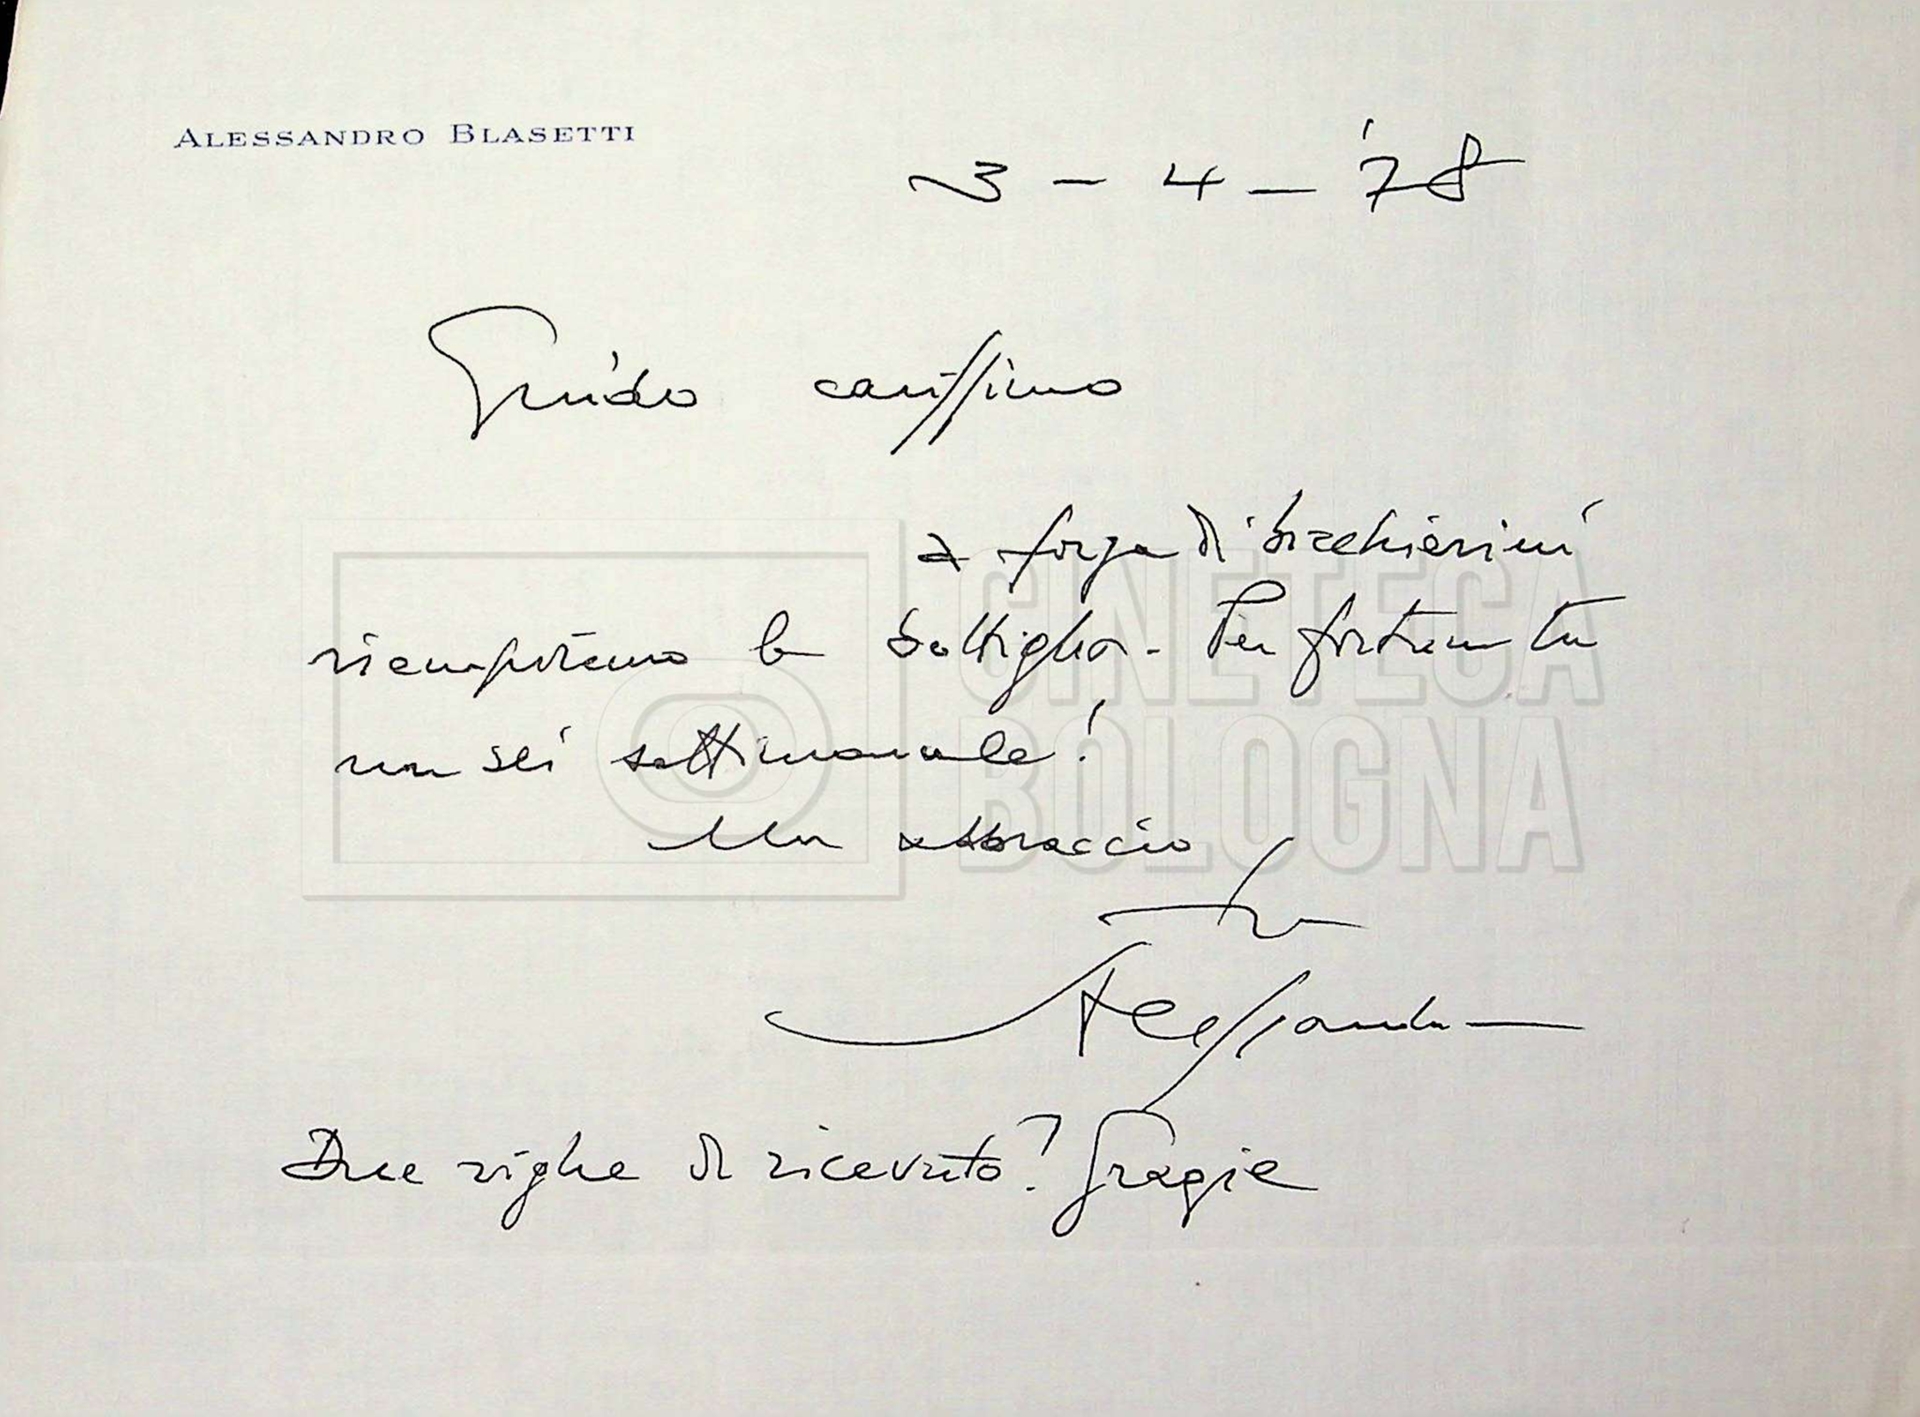 ALESSANDRO BLASETTI
3 - 4 - '78
Guido carissimo
a forza di bicchierini
riempiremo la bottiglia. Per fortuna tu
non sei settimanale!
Un abbraccio
Tuo
Alessandro
Due righe di ricevuto? Grazie
CINETECA
BOLOGNA